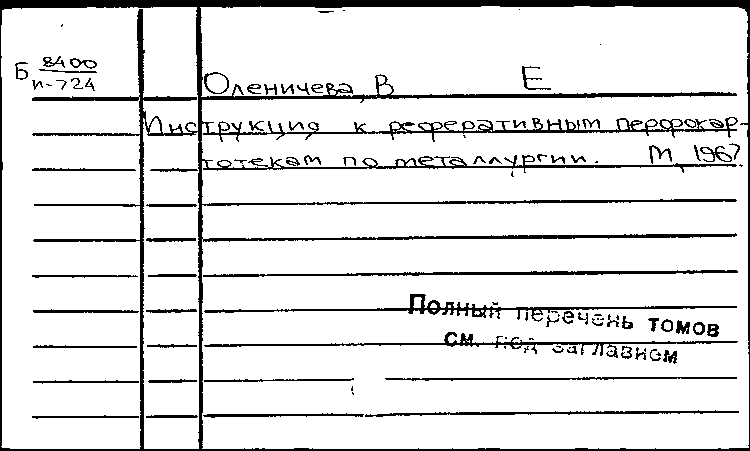 Б 8400
И-724
Оленичева, В Е
Инструкция к реферативным перфокар-
тотекам по металлургии. М, 1967
Полный перечень томов
см. под заглавием